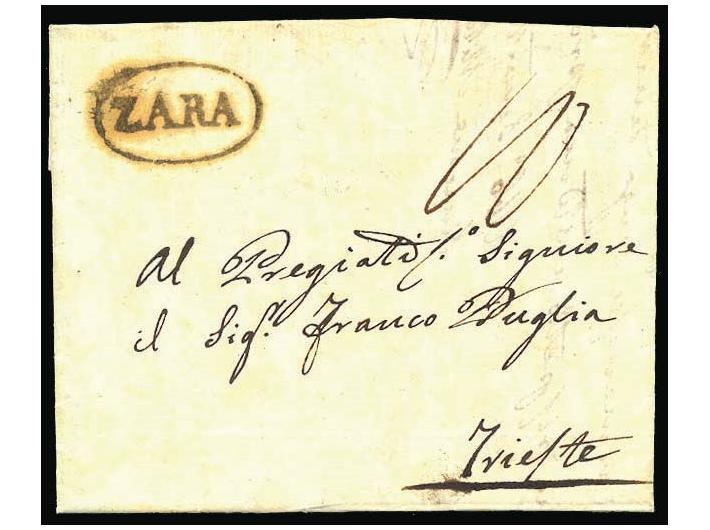 ZARA
Al Pregiatiſ.º Signiore
il Sigʳ. Franco Puglia
Trieſte